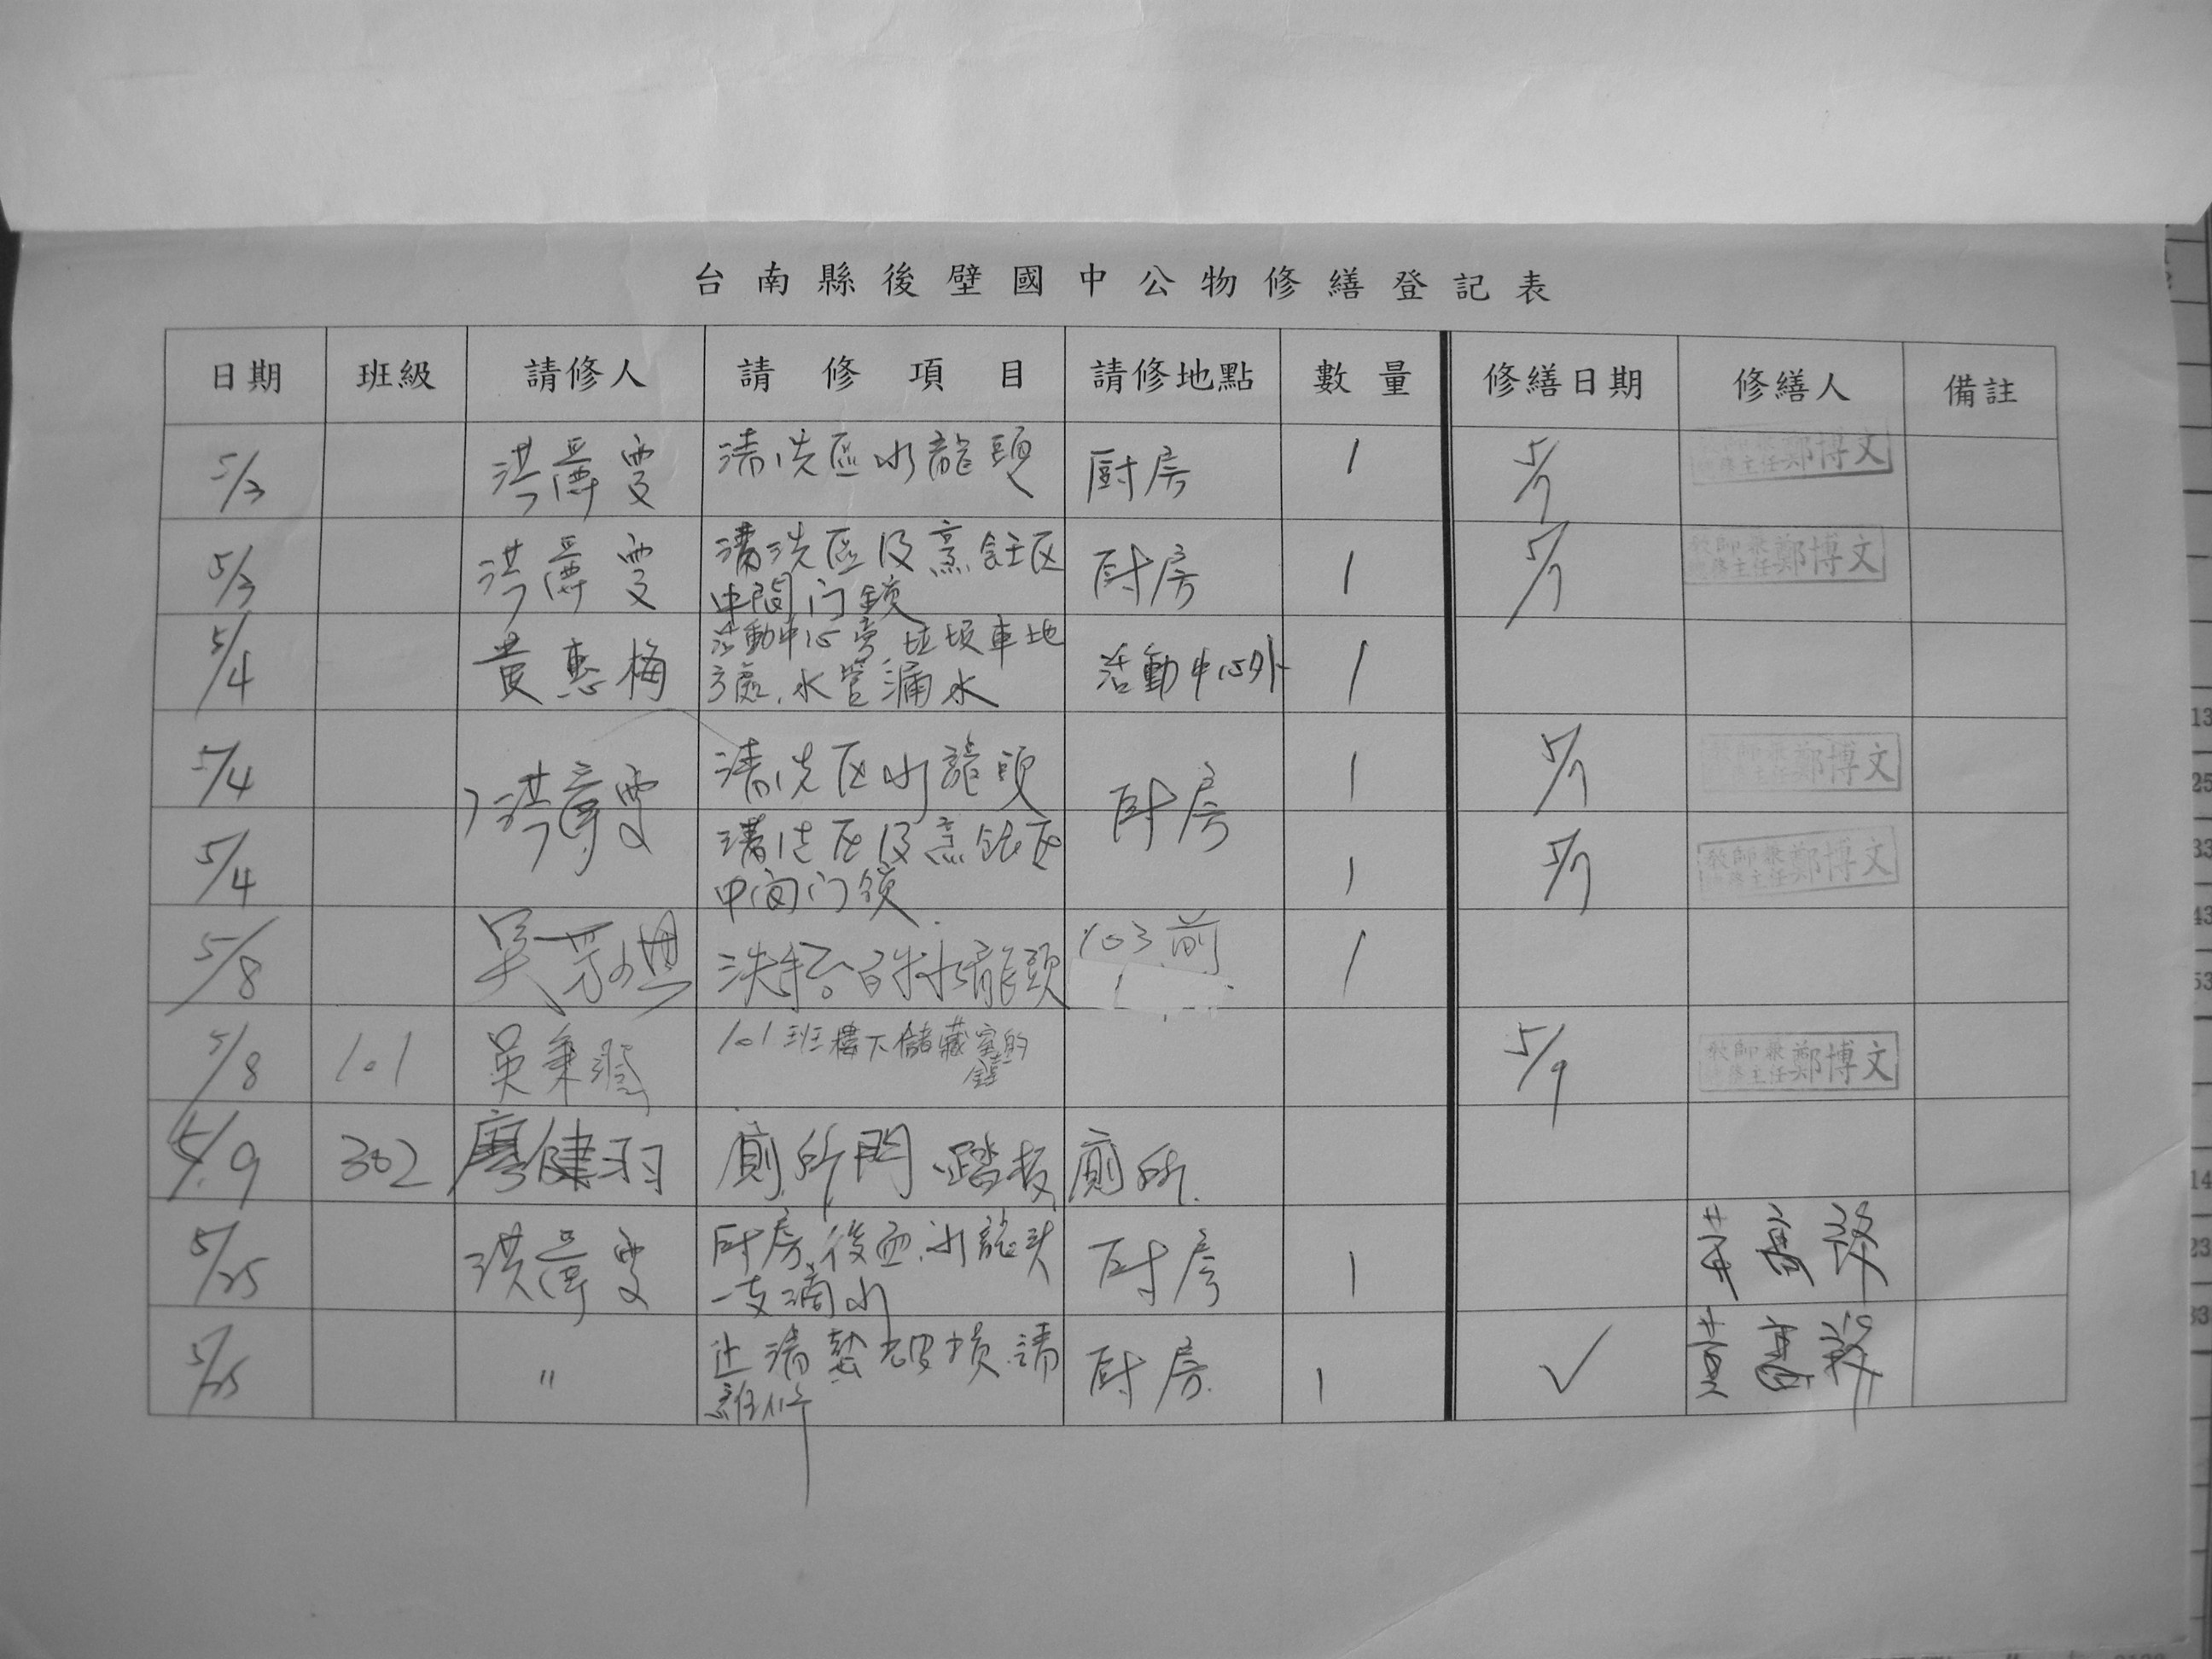 台南縣後壁國中公物修繕登記表
日期 班級 請修人 請修項目 請修地點 數量 修繕日期 修繕人 備註
5/3 清洗區水龍頭 厨房 1 5/7 教師兼總務主任鄭博文
5/3 清洗區及烹飪区
中間门鎖 厨房 1 5/7 教師兼總務主任鄭博文
5/4 黄惠梅 活動中心旁垃圾車地
方處,水管漏水 活動中心外 1
5/4 清洗区水龍頭 厨房 1 5/7 教師兼總務主任鄭博文
5/4 清洗区及烹飪区
中间门鎖 1 5/7 教師兼總務主任鄭博文
5/8 洗手台 水龍頭 103前 1
5/8 101 吳秉 101班樓下儲藏室的
鎖 5/9 教師兼總務主任鄭博文
5/9 302 廖健羽 廁所門 踏板 廁所.
5/25 厨房後面水龍头
一支滴水 厨房 1
5/25 " 破損.請
維修 厨房. 1 ✓